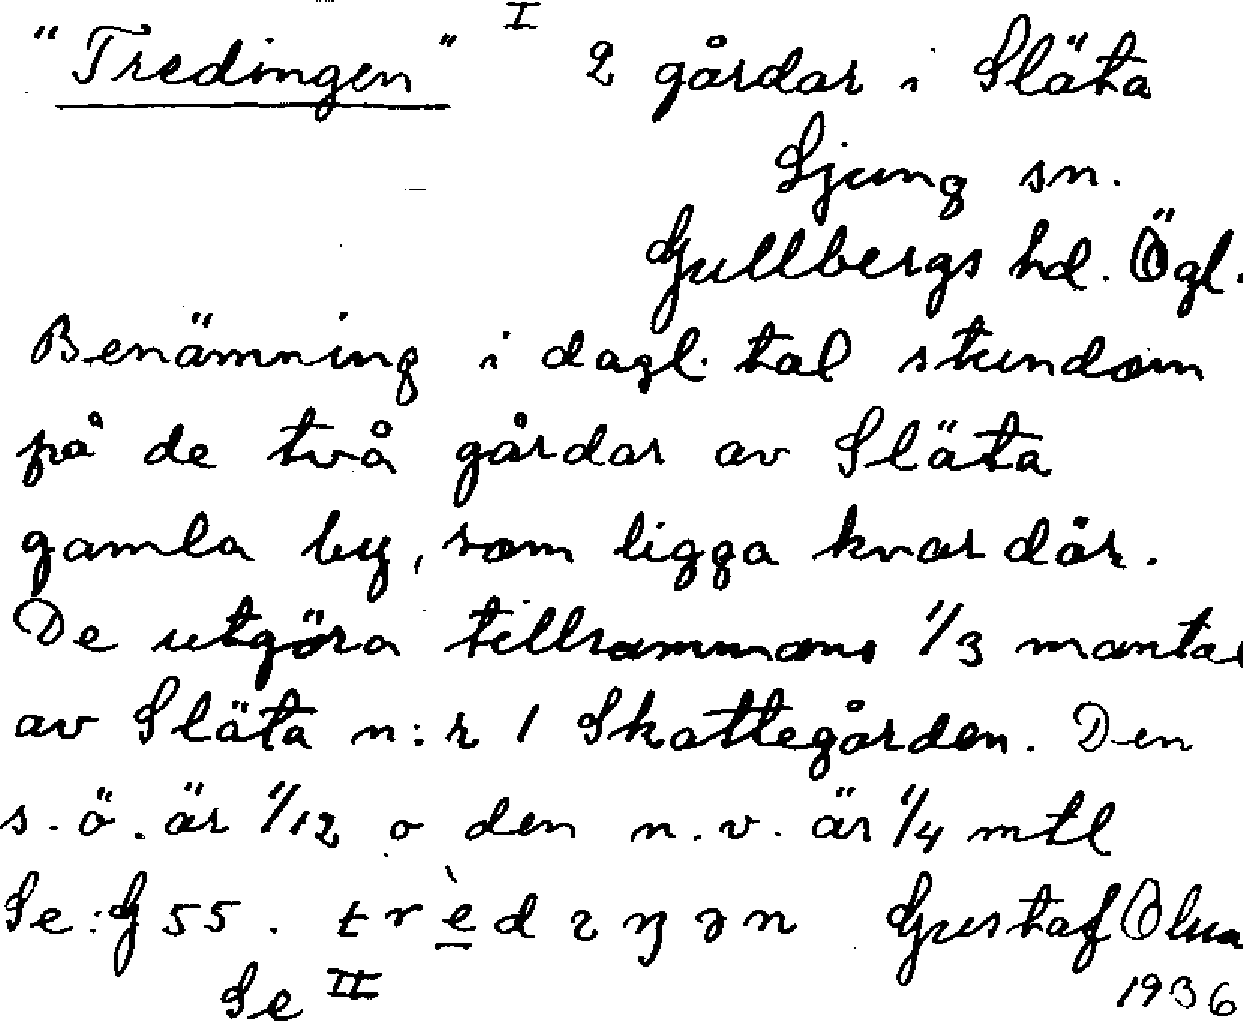 "Tredingen" I 2 gårdar i Släta
Ljung sn.
Gullbergs hd. Ögl.
Benämning i dagl. tal stundom
på de två gårdar av Släta
gamla by, som ligga kvar där.
De utgöra tillsammans 1/3 mantal
av Släta n:r 1 Skattegården. Den
s.ö. är 1/12 o den n.v. är 1/4 mtl
Se: G 55. Gustaf
Se II 1936